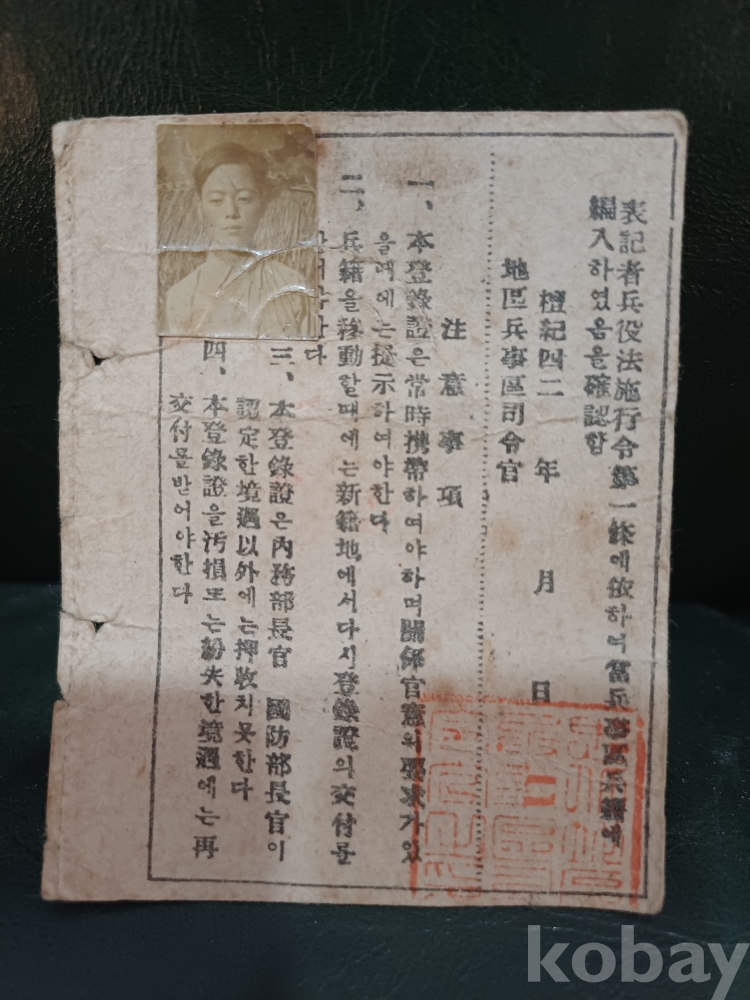 表記者兵役法施行令第一條에依하여當兵事區兵籍에
編入하였음을確認함
檀紀四二 年 月 日
地區兵事區司令官
注意事項
一、本登錄證은常時携帶하여야하며關係官憲의要求가있
을때에는提示하여야한다
二、兵籍을移動할때에는新籍地에서다시登錄證의交付를
한다
三、本登錄證은內務部長官 國防部長官이
認定한境遇以外에는押收치못한다
四、本登錄證을汚損또는紛失한境遇에는再
交付를받어야한다
kobay